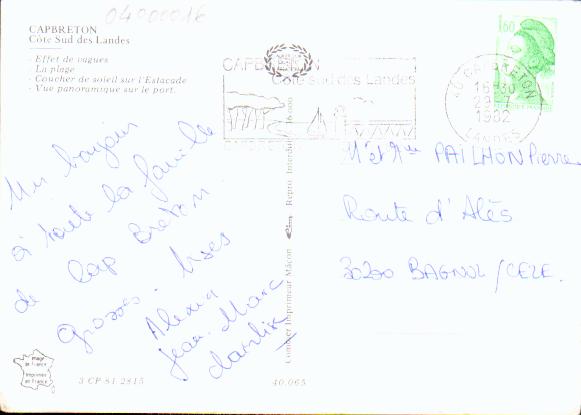 04000016
CAPBRETON
Côte Sud des Landes
- Effet de vagues
- La plage
- Coucher de soleil sur l'Estacade
- Vue panoramique sur le port.
Un bonjour
à toute la famille
de Cap Breton
Grosses bises
Alexis
Jean-Marc
CAPBRETON
Côte sud des Landes
1,60
40 CAPBRETON
16H30
29-7
1982
LANDES
Mr et Mme PAILHON Pierre
Route d'Alès
30200 BAGNOL/CEZE.
Combier Imprimeur Mâcon Cim Repro. Interdite
Image de France
Imprimée en France
3 CP 81 2815
40.065